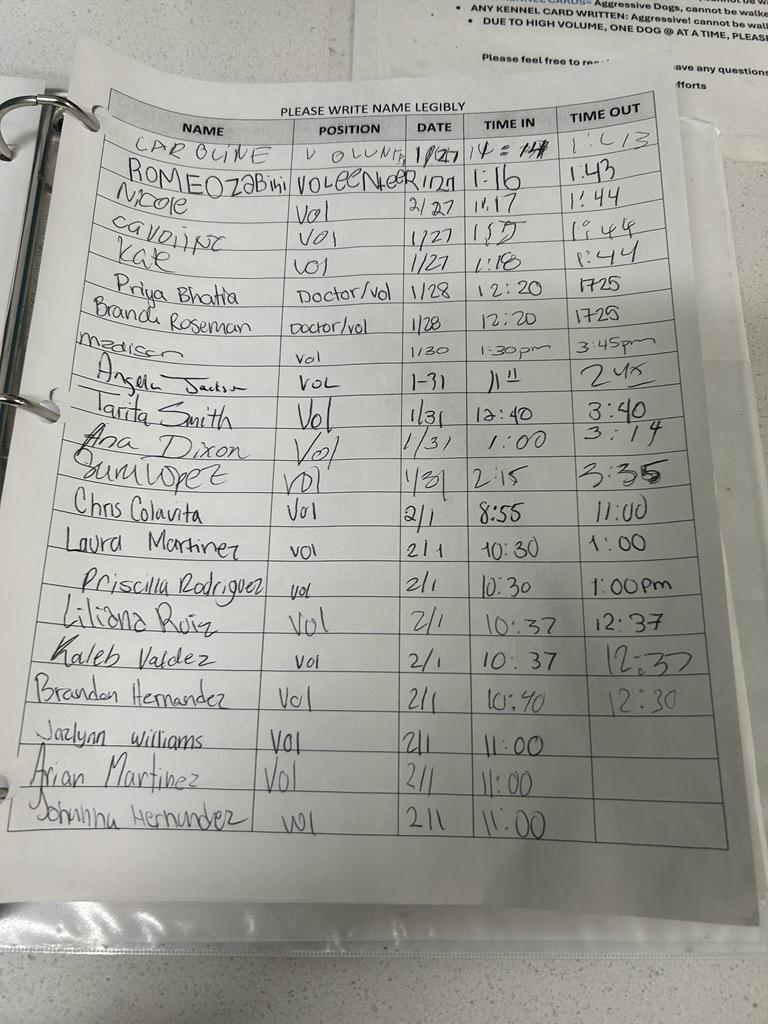 Aggressive Dogs, cannot be walke
• ANY KENNEL CARD WRITTEN: Aggressive! cannot be wal
• DUE TO HIGH VOLUME, ONE DOG @ AT A TIME, PLEAS
Please feel free to ave any questions
fforts
PLEASE WRITE NAME LEGIBLY
NAME POSITION DATE TIME IN TIME OUT
CAROLINE 1/27
ROMEO zaBini VOLEENteeR 1/27 1:16 1:43
Nicole Vol 2/27 1:17 1:44
VOl 1/27 1:44
Kate vol 1/27 1:18 1:44
Priya Bhatia Doctor/vol 1/28 12:20 1725
Brandi Roseman Doctor/vol 1/28 12:20 1725
madison vol 1/30 1:30pm 3:45pm
Angela Jackson VOL 1-31 11"
Tarita Smith Vol 1/31 12:40 3:40
Ana Dixon Vol 1/31 1:00 3:14
Lopez vol 1/31 2:15 3:35
Chris Colavita Vol 2/1 8:55 11:00
Laura Martinez vol 2/1 10:30 1:00
Priscilla Rodriguez vol 2/1 10:30 1:00pm
Liliana Ruiz Vol 2/1 10:37 12:37
Kaleb Valdez vol 2/1 10:37 12:37
Brandon Hernandez Vol 2/1 10:40 12:30
Jazlynn Williams Vol 2/1 11:00
Arian Martinez Vol 2/1 11:00
Hernandez vol 2/1 11:00